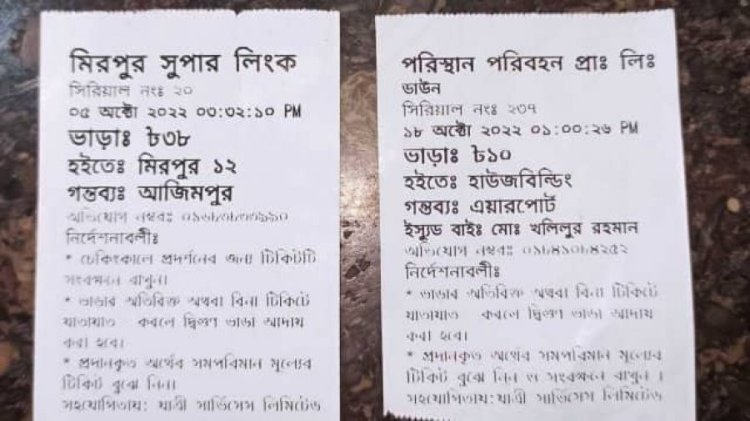 মিরপুর সুপার লিংক
সিরিয়াল নংঃ ২০
০৫ অক্টো ২০২২ ০৩:৩২:১০ PM
ভাড়াঃ ৳৩৮
হইতেঃ মিরপুর ১২
গন্তব্যঃ আজিমপুর
অভিযোগ নম্বরঃ
নির্দেশনাবলীঃ
* চেকিংকালে প্রদর্শনের জন্য টিকিটটি
সংরক্ষনে রাখুন।
* ভাড়ার অতিরিক্ত অথবা বিনা টিকিটে
যাতায়াত করলে দ্বিগুণ ভাড়া আদায়
করা হবে।
* প্রদানকৃত অর্থের সমপরিমান মূল্যের
টিকিট বুঝে নিন।
সহযোগিতায়: যাত্রী সার্ভিসেস লিমিটেড
পরিস্থান পরিবহন প্রাঃ লিঃ
ডাউন
সিরিয়াল নংঃ ২৩৭
১৮ অক্টো ২০২২ ০১:০০:২৬ PM
ভাড়াঃ ৳১০
হইতেঃ হাউজবিল্ডিং
গন্তব্যঃ এয়ারপোর্ট
ইস্যুড বাইঃ মোঃ খলিলুর রহমান
অভিযোগ নম্বরঃ
নির্দেশনাবলীঃ
* ভাড়ার অতিরিক্ত অথবা বিনা টিকিটে
যাতায়াত করলে দ্বিগুণ ভাড়া আদায়
করা হবে।
* প্রদানকৃত অর্থের সমপরিমান মূল্যের
টিকিট বুঝে নিন ও সংরক্ষনে রাখুন ।
সহযোগিতায়: যাত্রী সার্ভিসেস লিমিটেড